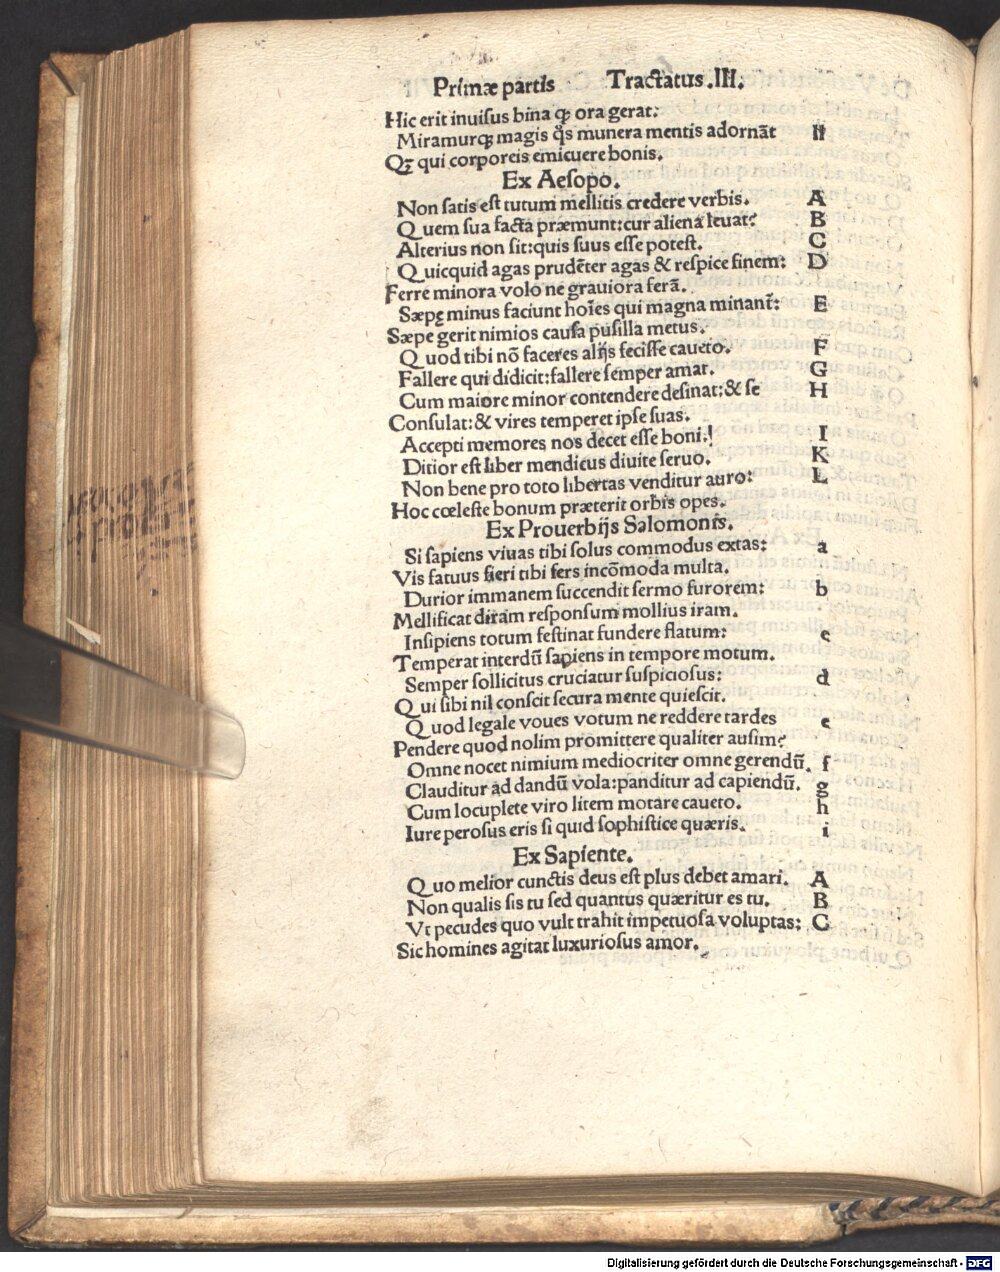 Primæ partis Tractatus .III.
Hic erit inuisus bina ꝙ ora gerat:
Miramurqꝫ magis q̃s munera mentis adornãt II
Qꝫ qui corporeis emicuere bonis.
Ex Aesopo.
Non satis est tutum mellitis credere verbis. A
Quem sua facta præmunt: cur aliena leuat? B
Alterius non sit: quis suus esse potest. C
Quicquid agas prudẽter agas & respice finem: D
Ferre minora volo ne grauiora ferã.
Sæpe minus faciunt hoĩes qui magna minant̃: E
Sæpe gerit nimios caussa pusilla metus.
Quod tibi nõ faceres alijs fecisse caueto. F
Fallere qui didicit: fallere semper amat. G
Cum maiore minor contendere desinat: & se H
Consulat: & vires temperet ipse suas.
Accepti memores nos decet esse boni. I
Ditior est liber mendicus diuite seruo. K
Non bene pro toto libertas venditur auro: L
Hoc cœleste bonum præterit orbis opes.
Ex Prouerbijs Salomonis.
Si sapiens viuas tibi solus commodus extas: a
Vis fatuus fieri tibi fers incõmoda multa.
Durior immanem succendit sermo furorem: b
Mellificat diram responsum mollius iram.
Insipiens totum festinat fundere flatum: c
Temperat interdũ sapiens in tempore motum.
Semper sollicitus cruciatur suspiciosus: d
Qui sibi nil conscit secura mente quiescit.
Quod legale voues votum ne reddere tardes e
Pendere quod nolim promittere qualiter ausim?
Omne nocet nimium mediocriter omne gerendũ. f
Clauditur ad dandũ vola: panditur ad capiendũ. g
Cum locuplete viro litem motare caueto. h
Iure perosus eris si quid sophistice quæris. i
Ex Sapiente.
Quo melior cunctis deus est plus debet amari. A
Non qualis sis tu sed quantus quæritur es tu. B
Vt pecudes quo vult trahit impetuosa voluptas: C
Sic homines agitat luxuriosus amor.
Digitalisierung gefördert durch die Deutsche Forschungsgemeinschaft - DFG